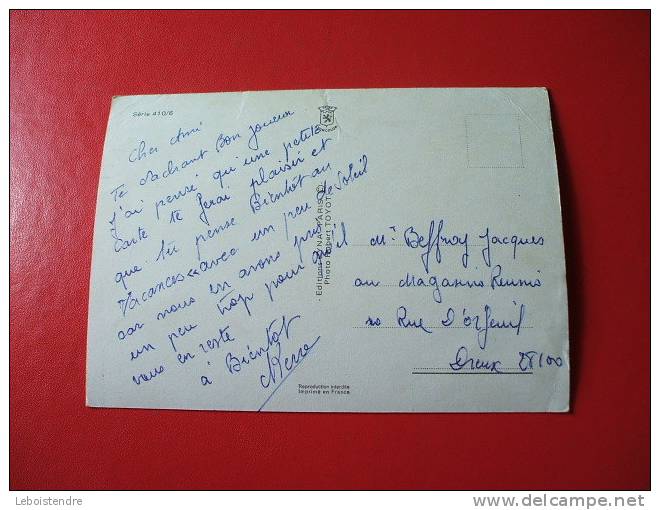 Série 410/6
Cher Ami
Te sachant Bon Joueur
J'ai pensé qu'une petite
Carte te ferai plaisir et
que tu pense Bientot au
Vacances avec un peu de Soleil
car nous en avons pris
un peu trop pour qu'il
nous en reste
à Bientot
Pierre
Editions
PARIS
Photo Robert TOYOT
Mr Beffroy Jacques
au Magasins Reunis
Rue D'orfeuil
Dreux 28100
Reproduction interdite
Imprimé en France
Leboistendre
delcampe.net